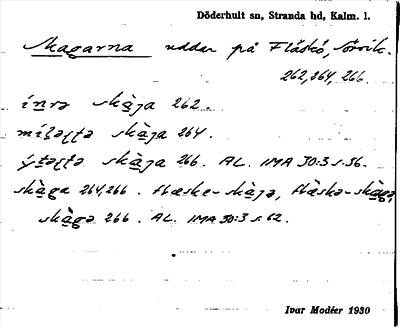 Döderhult sn, Stranda hd, Kalm. l.
Skagarna uddar på Fläskö, Sörvik.
262, 264, 266.
inrə skàja 262.
miləstə skàja 264.
ýtəstə skàja 266. AL. IMA 30:3 s. 36.
skàga 264, 266. flæske-skàjə, flæskə-skàgə,
skàgə 266. AL. IMA 30:3 s. 62.
Ivar Modéer 1930